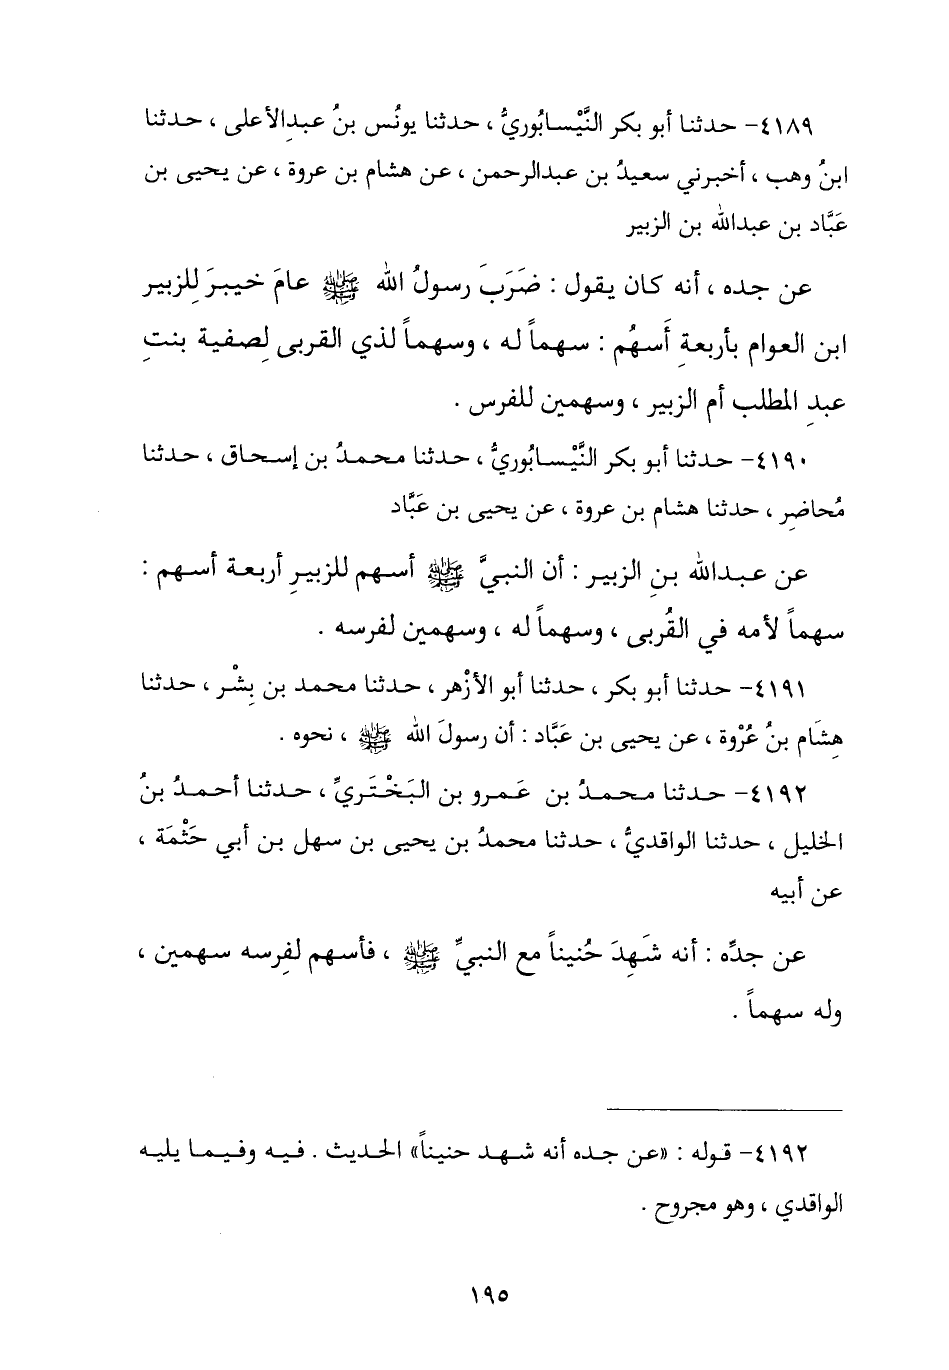 ٤١٨٩- حدثنا أبو بكر النَّيْسابُوريُّ ، حدثنا يونُس بنُ عبدِالأعلى ، حدثنا
ابنُ وهب ، أخبرني سعيدُ بن عبدالرحمن ، عن هشام بن عروة ، عن يحيى بن
عَبَّاد بن عبدالله بن الزبير
عن جده ، أنه كان يقول : ضَرَبَ رسولُ الله ﷺ عامَ خيبرَ لِلزبير
ابن العوام بأربعةِ أَسهُم : سهماً له ، وسهماً لذي القربى لِصفية بنتِ
عبدِ المطلب أم الزبير ، وسهمين للفرس .
٤١٩٠- حدثنا أبو بكر النَّيْسابُوريُّ ، حدثنا محمدُ بن إسحاق ، حدثنا
مُحاضِر ، حدثنا هشام بن عروة ، عن يحيى بن عَبَّاد
عن عبدالله بنِ الزبير : أن النبيَّ ﷺ أسهم للزبيرِ أربعة أسهم :
سهماً لأمه في القُربى ، وسهماً له ، وسهمين لفرسه .
٤١٩١- حدثنا أبو بكر ، حدثنا أبو الأزْهر ، حدثنا محمد بن بِشْر ، حدثنا
هِشَام بنُ عُرْوة ، عن يحيى بن عَبَّاد : أن رسولَ الله ﷺ ، نحوه .
٤١٩٢- حدثنا محمدُ بن عَمرو بن البَخْتَريِّ ، حدثنا أحمدُ بنُ
الخليل ، حدثنا الواقديُّ ، حدثنا محمدُ بن يحيى بن سهل بن أبي حَثْمَة ،
عن أبيه
عن جدِّه : أنه شَهِدَ حُنيناً مع النبيِّ ﷺ ، فأسهم لفرسه سهمين ،
وله سهماً .
٤١٩٢- قوله : «عن جده أنه شهد حنيناً» الحديث . فيه وفيما يليه
الواقدي ، وهو مجروح .
١٩٥